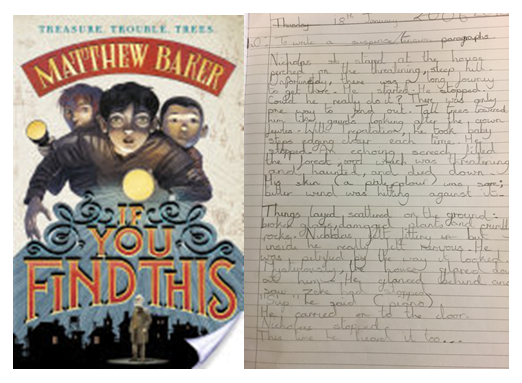 TREASURE. TROUBLE. TREES.
MATTHEW BAKER
IF
YOU
FIND THIS
Thursday 18th January
To write a suspense/tension paragraphs
Nicholas stared at the house
perched on the threatening, steep hill.
Unfortunately, there was a long journey
to get there. He started. He stopped.
Could he really do it? There was only
one way to find out. Tall trees towered
him like guards looking after the crown
jewels. With trepidation, he took baby
steps edging closer each time. He
stopped. An echoing screech filled
the forest, which was threatening
and haunted, and died down.
His skin (a pale colour) was
bitter wind was hitting against it.
Things layed scattered on the ground:
broken damaged plants and
rocks. Nicholas but
inside he really felt nervous. He
was petrified by the way it looked.
Mysteriously, the house glared down
at him. He glanced behind and
saw Zeke had stopped.
he said (piano)
He carried on to the door.
Nicholas stopped.
This time he heard it too...